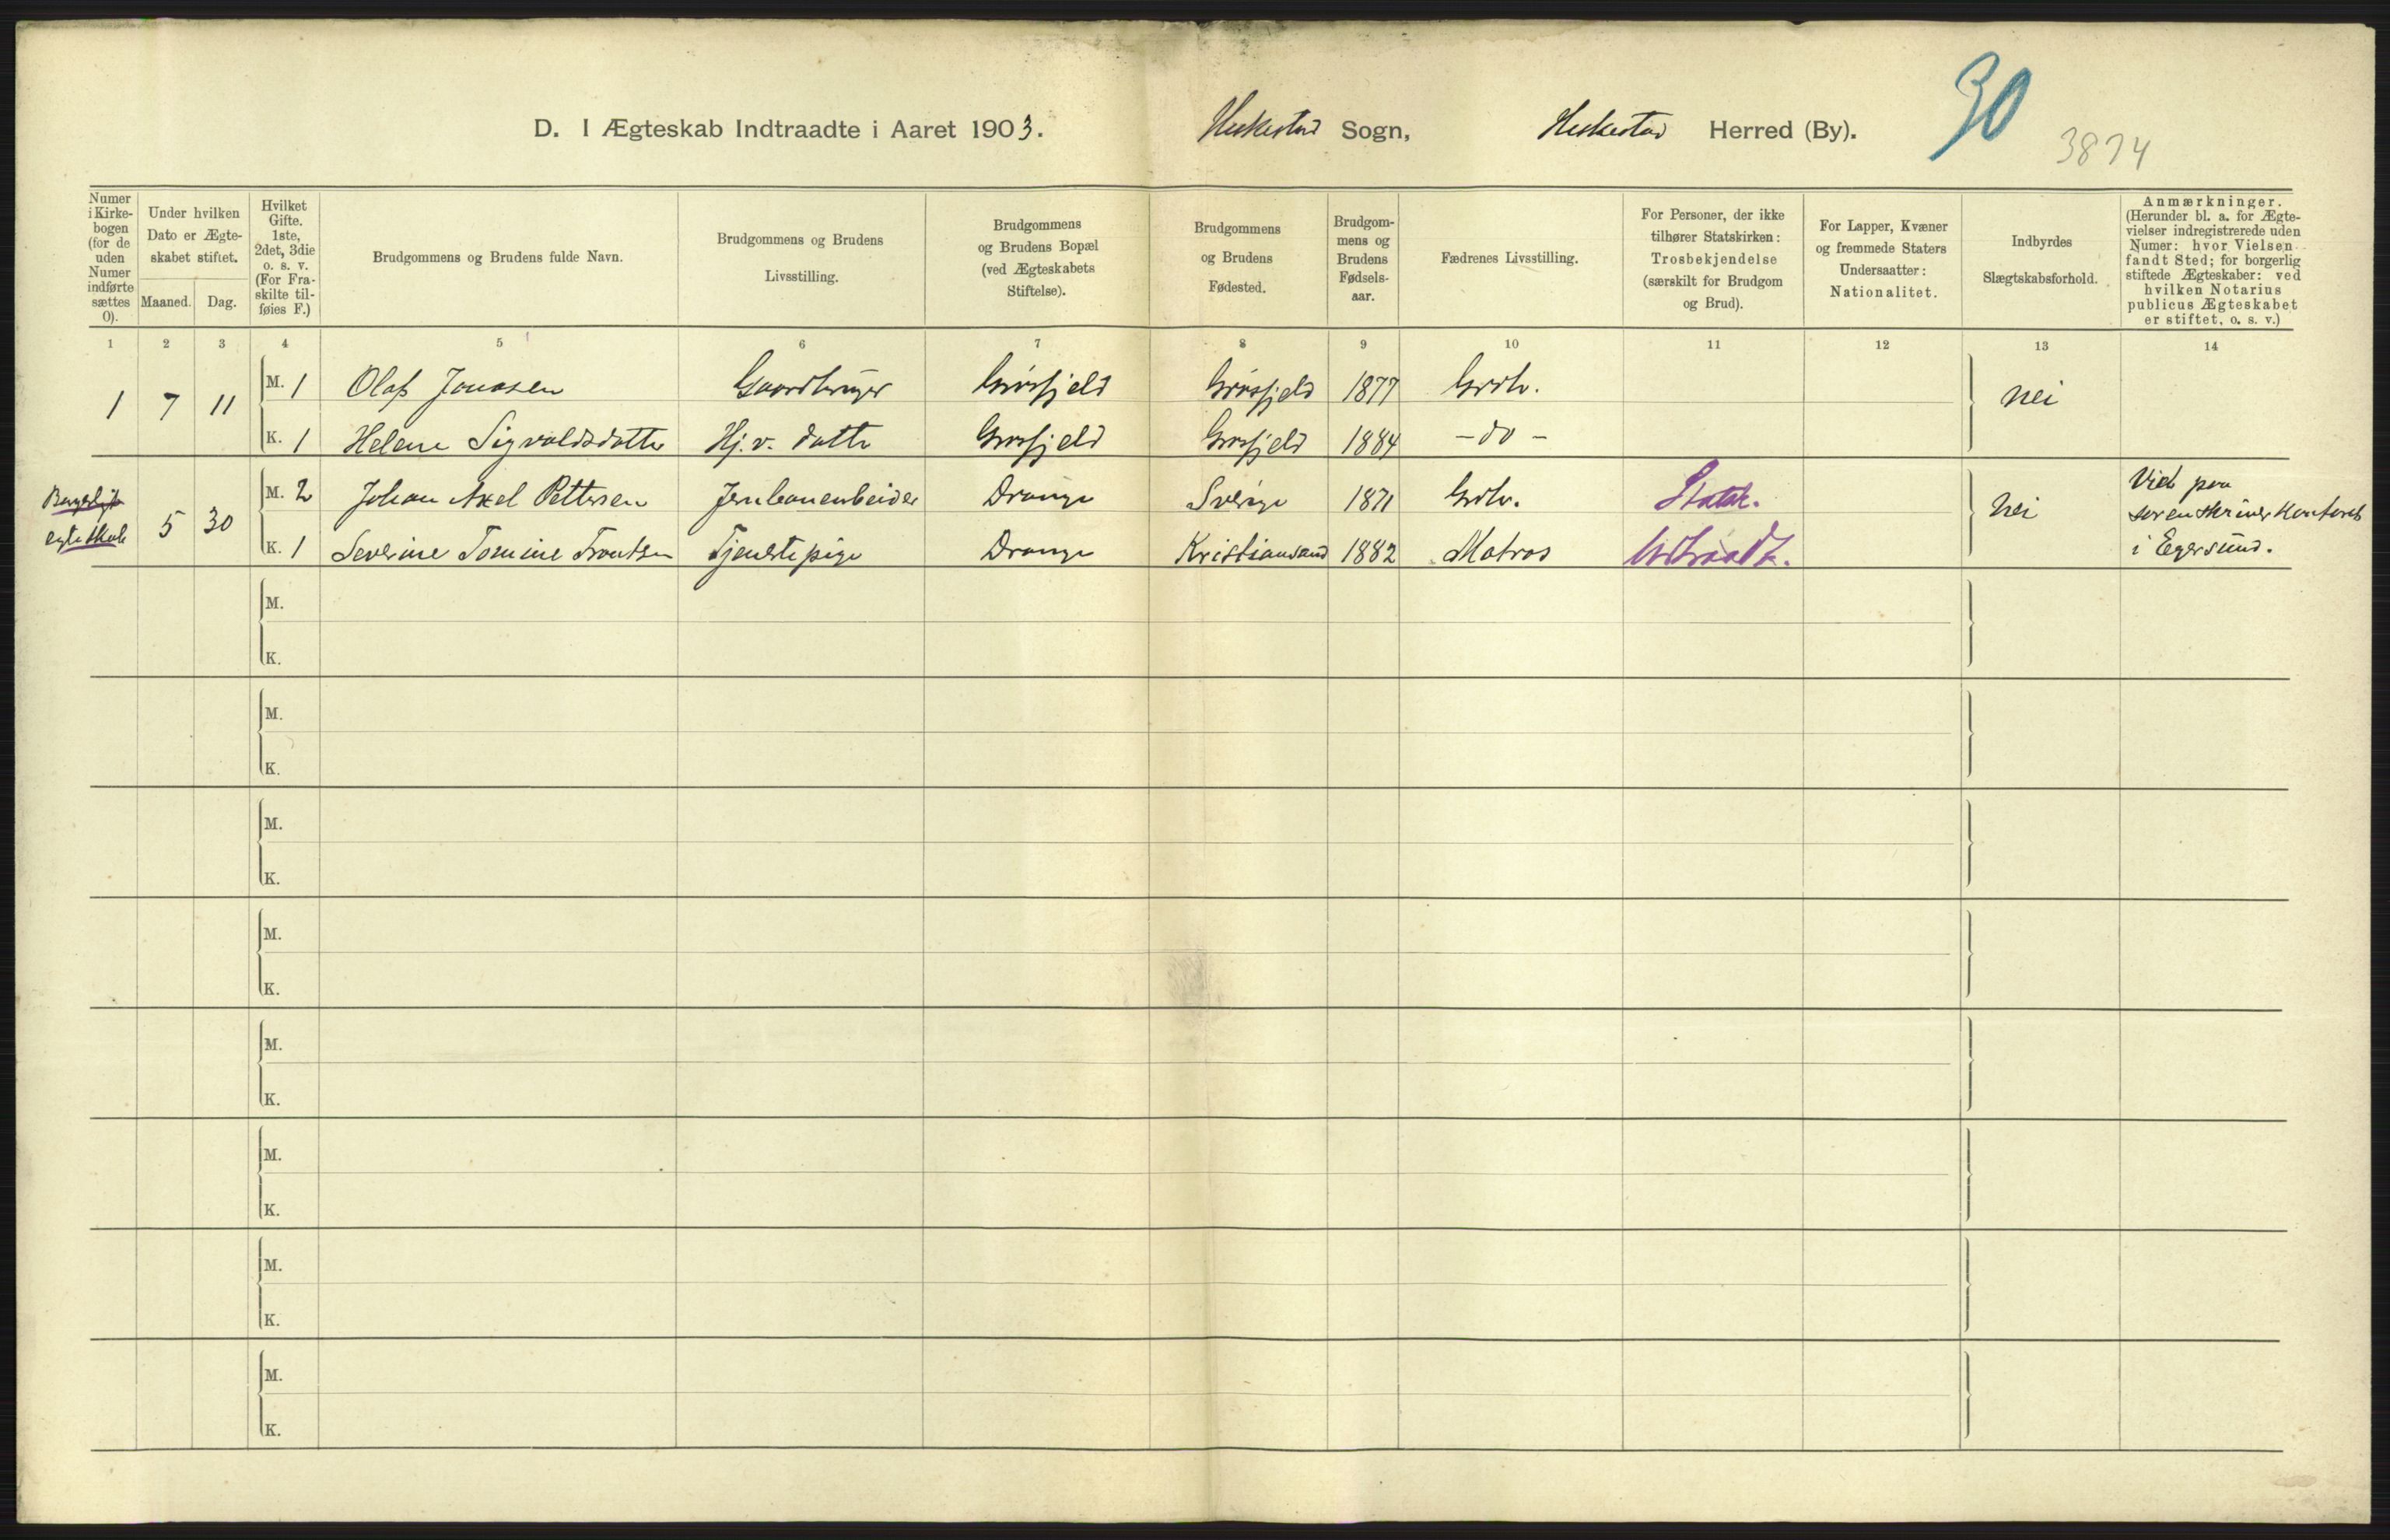 D. I Ægteskab Indtraadte i Aaret 1903. Heskestad Sogn, Heskestad Herred (By). 30 3874
Numer i Kirkebogen (for de uden Numer indførte sættes 0).
Under hvilken Dato er Ægteskabet stiftet.
Maaned. Dag.
Hvilket Gifte. 1ste, 2det, 3die o. s. v. (For Fraskilte tilføies F.)
Brudgommens og Brudens fulde Navn.
Brudgommens og Brudens Livsstilling.
Brudgommens og Brudens Bopæl (ved Ægteskabets Stiftelse).
Brudgommens og Brudens Fødested.
Brudgommens og Brudens Fødselsaar.
Fædrenes Livsstilling.
For Personer, der ikke tilhører Statskirken: Trosbekjendelse (særskilt for Brudgom og Brud).
For Lapper, Kvæner og fremmede Staters Undersaatter: Nationalitet.
Indbyrdes Slægtskabsforhold.
Anmærkninger. (Herunder bl. a. for Ægtevielser indregistrerede uden Numer: hvor Vielsen fandt Sted; for borgerlig stiftede Ægteskaber: ved hvilken Notarius publicus Ægteskabet er stiftet, o. s. v.)
1 2 3 4 5 6 7 8 9 10 11 12 13 14
1 7 11 M. 1 Olaf Jonasen Gaardbruger Grøsfjeld Grøsfjeld 1877 Grdb. nei
K. 1 Helene Sigvaldsdatter Hj.v. datter Grøsfjeld Grøsfjeld 1884 - do -
Borgerligt egteskab 5 30 M. 2 Johan Axel Pettersen Jernbanearbeider Drange Sverige 1871 Grdbr. Statsk. nei Viet paa sorenskriverkontoret
K. 1 Severine Tomine Trondsen Tjenestepige Drange Kristiansand 1882 Matros Udtraadt. i Egersund.
M.
K.
M.
K.
M.
K.
M.
K.
M.
K.
M.
K.
M.
K.
M.
K.